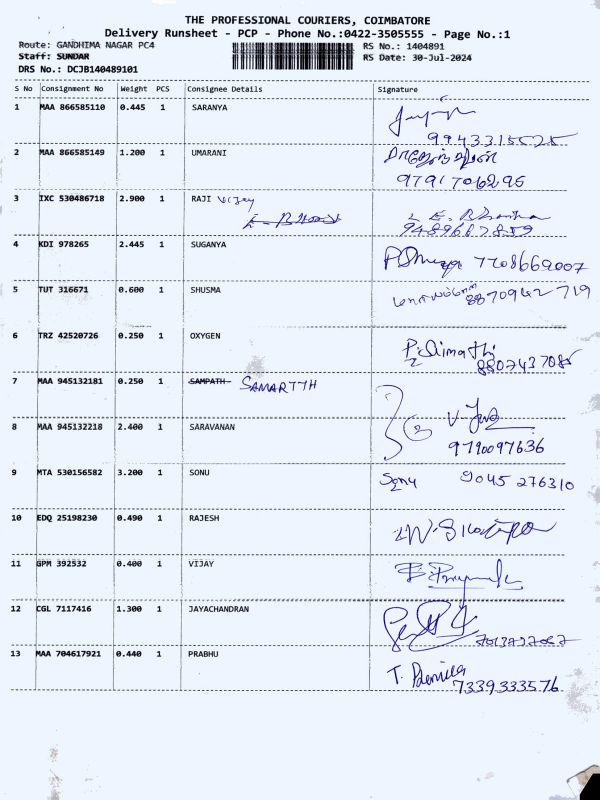 THE PROFESSIONAL COURIERS, COIMBATORE
Delivery Runsheet - PCP - Phone No.:0422-3505555 - Page No.:1
Route: GANDHIMA NAGAR PC4 RS No.: 1404891
Staff: SUNDAR RS Date: 30-Jul-2024
DRS No.: DCJB140489101
S No Consignment No Weight PCS Consignee Details Signature
1 MAA 866585110 0.445 1 SARANYA
9943315525
2 MAA 866585149 1.200 1 UMARANI
9791706295
3 IXC 530486718 2.900 1 RAJI Vijay
9489687859
4 KDI 978265 2.445 1 SUGANYA 7708669007
5 TUT 316671 0.600 1 SHUSMA 8870942719
6 TRZ 42520726 0.250 1 OXYGEN
8807437085
7 MAA 945132181 0.250 1 SAMPATH SAMARTTH
8 MAA 945132218 2.400 1 SARAVANAN
9790097636
9 MTA 530156582 3.200 1 SONU Sonu 9045 276310
10 EDQ 25198230 0.490 1 RAJESH
11 GPM 392532 0.400 1 VIJAY
12 CGL 7117416 1.300 1 JAYACHANDRAN
13 MAA 704617921 0.440 1 PRABHU
7339333576